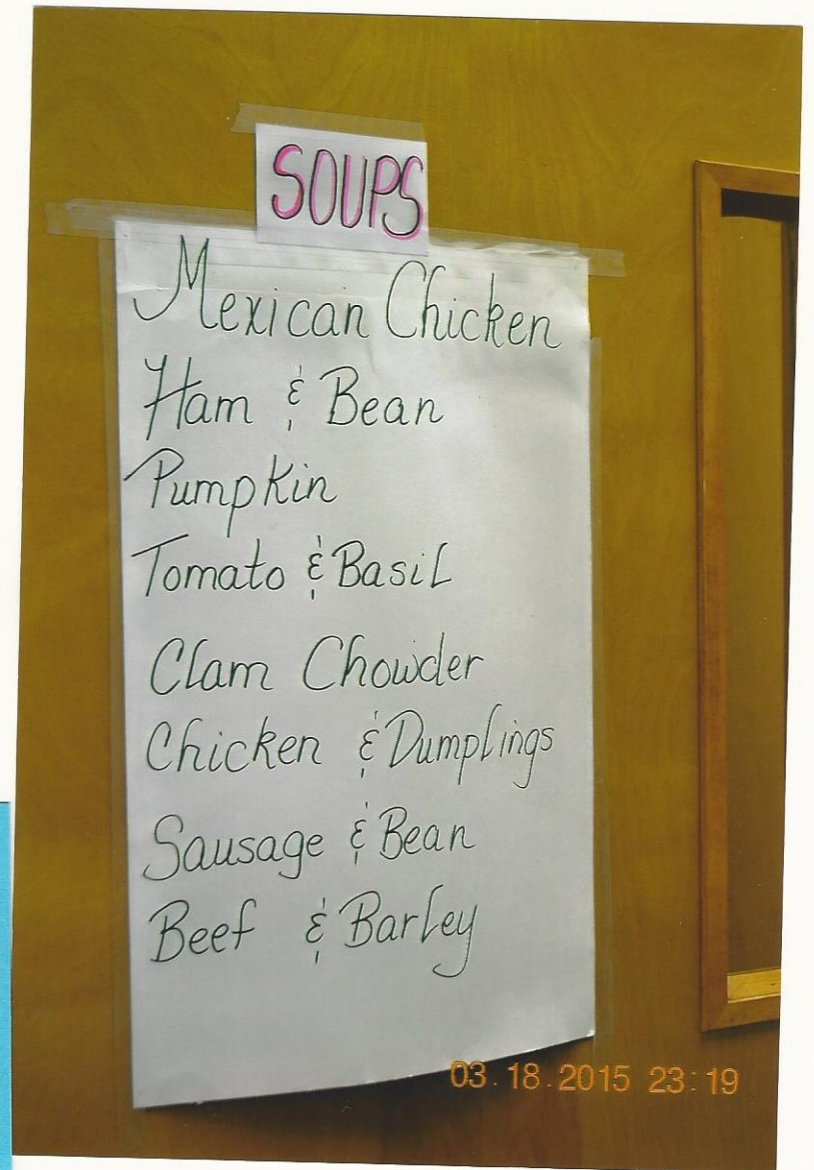 SOUPS
Mexican Chicken
Ham & Bean
Pumpkin
Tomato & Basil
Clam Chowder
Chicken & Dumplings
Sausage & Bean
Beef & Barley
03.18.2015 23:19